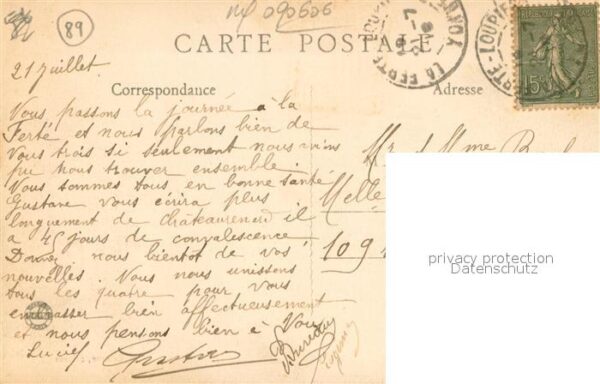 89
M 090606
CARTE POSTALE
LA FERTÉ-LOUPIÈRE
YONNE
15c
21 Juillet.
Correspondance
Adresse
Vous passons la journée à la
Ferté et nous parlons bien de
Vous trois si seulement nous avions
pu nous trouver ensemble.
Vous sommes tous en bonne santé
Gustave vous écrira plus
longuement de châteaurenard il
a 45 jours de convalescence.
Donnez nous bientot de vos
nouvelles. Vous nous unissons
tous les quatre pour vous
embrasser bien affectueusement
et nous pensons bien à Vous
Lucie Gustave
Eugene
Mr & Mme
Melle
109
privacy protection
Datenschutz